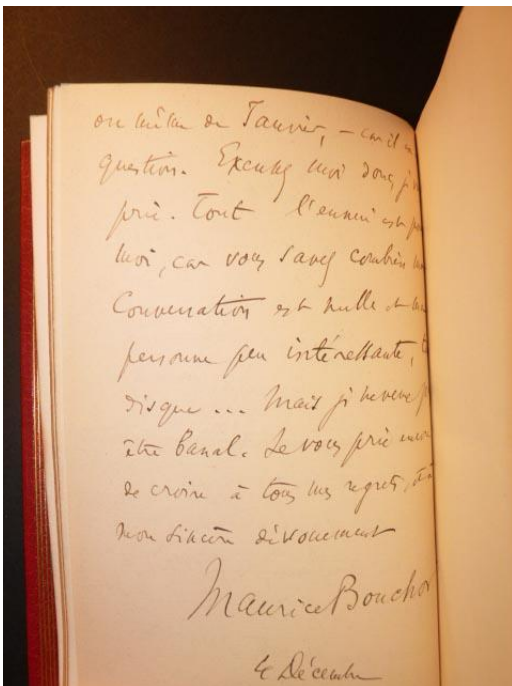 ou même de Janvier, – car il
question. Excusez moi donc, je
prie. Tout l'ennui est
moi, car vous savez combien
Conversation est nulle et ma
personne peu intéressante,
disque ... Mais je
être banal. Je vous prie encore
de croire à tous mes regrets, et à
mon sincère dévouement
Maurice Bouchor
4 Décembre